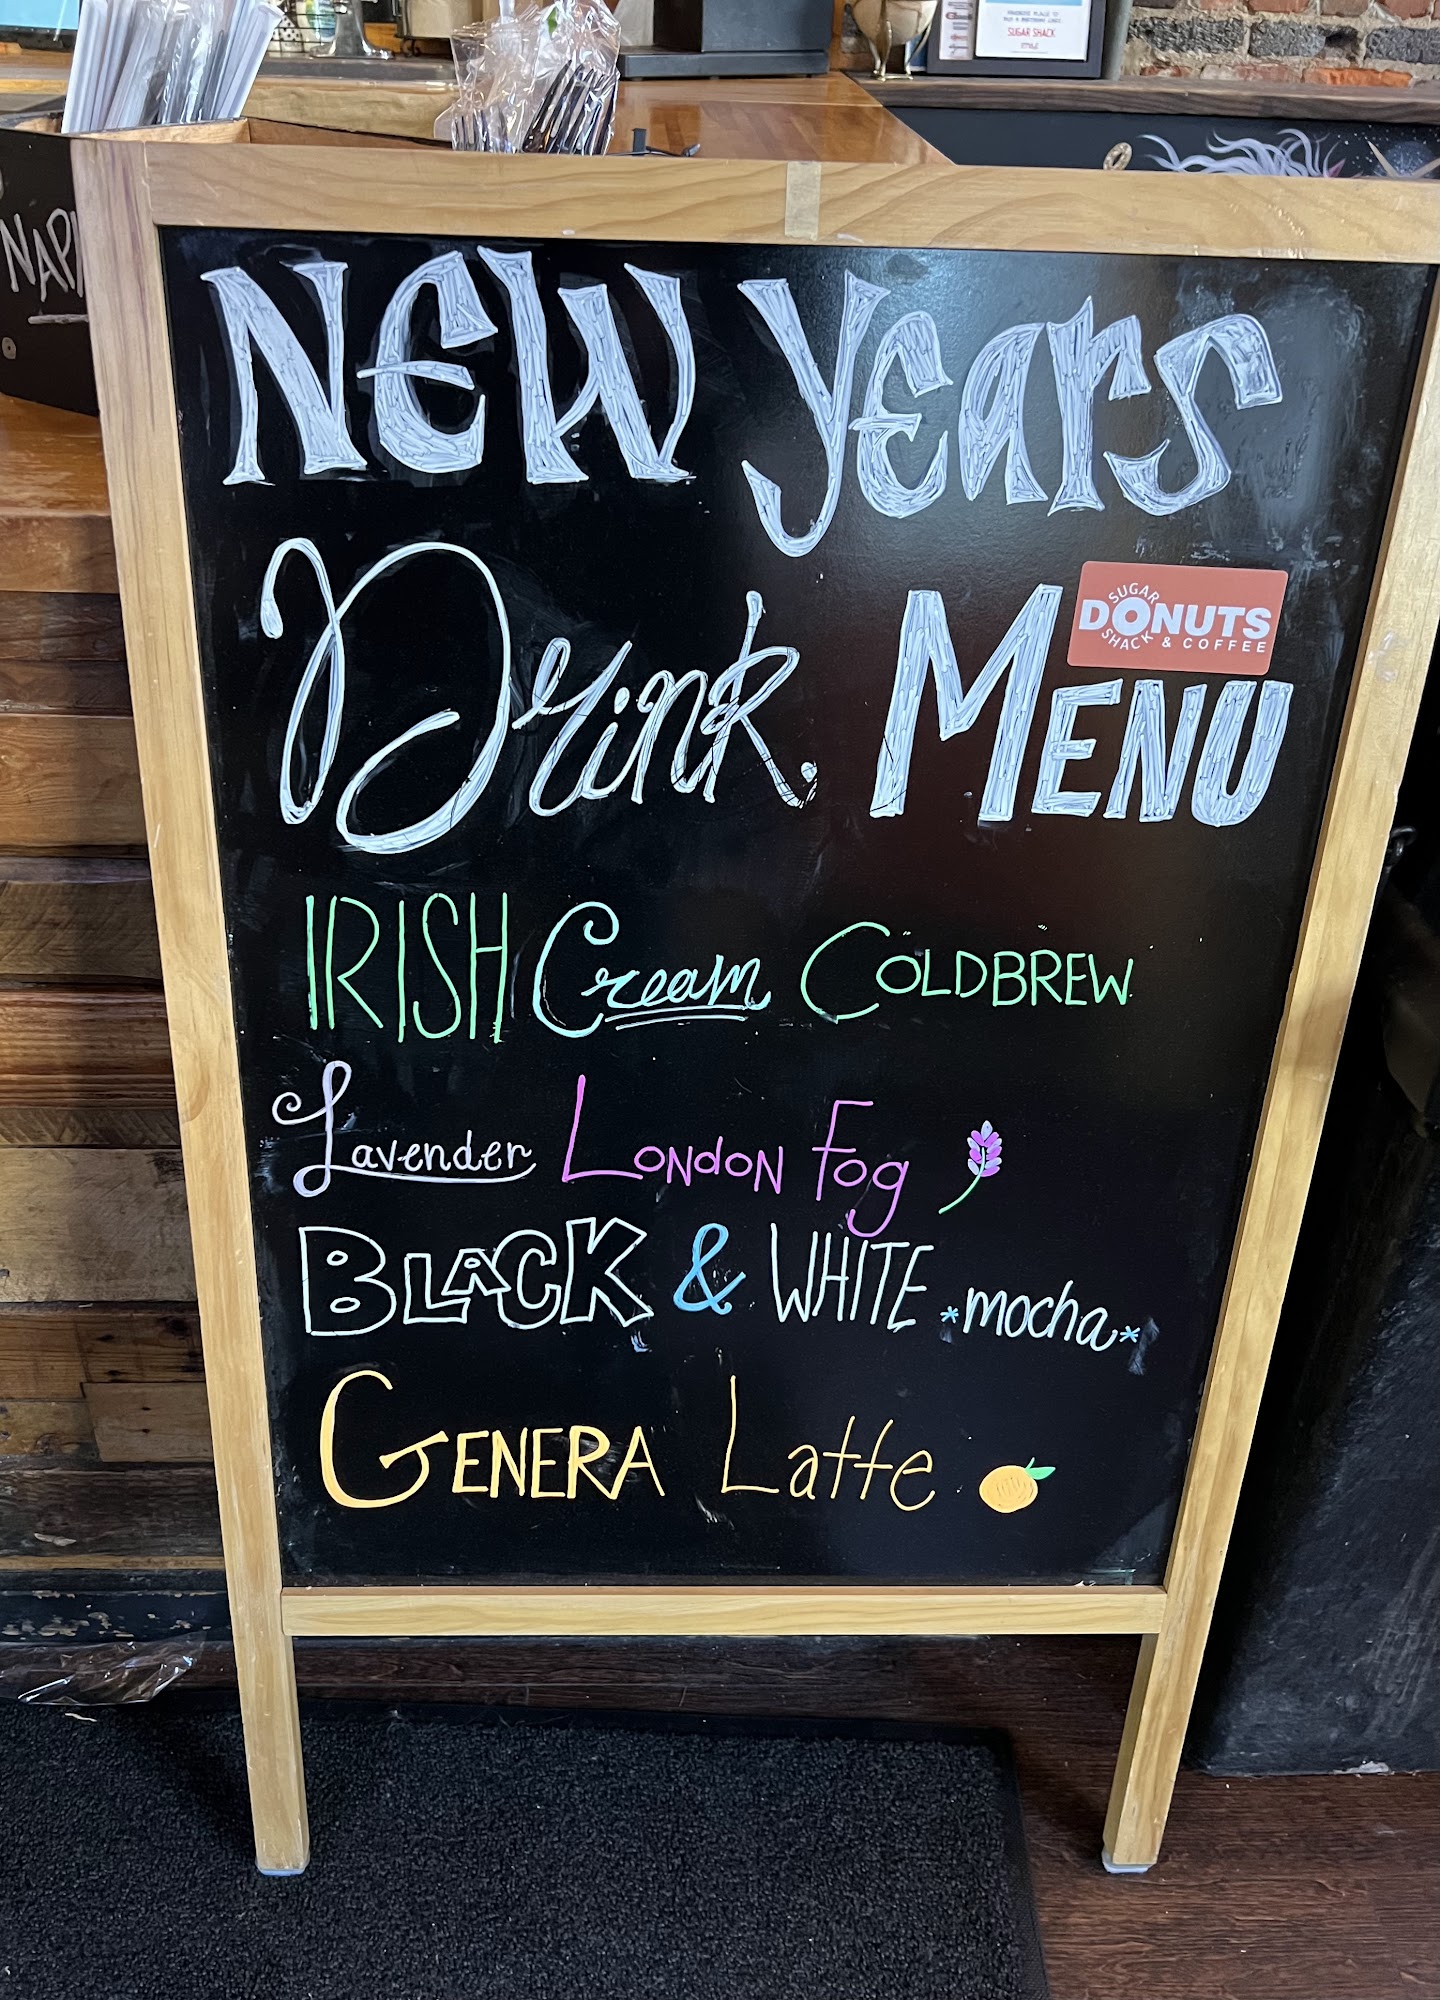 SUGAR SHACK
NAP
NEW Years
Drink MENU
SUGAR
DONUTS
SHACK & COFFEE
IRISH Cream COLDBREW
Lavender LONdON Fog
BLACK & WHITE *mocha*
GENERA Latte